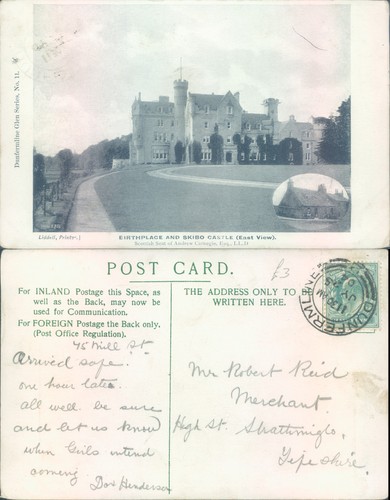 Dunfermline Glen Series, No. 11.
Liddell, Printer.]
BIRTHPLACE AND SKIBO CASTLE (East View).
Scottish Seat of Andrew Carnegie, Esq., LL.D
POST CARD.
For INLAND Postage this Space, as
well as the Back, may now be
used for Communication.
For FOREIGN Postage the Back only.
(Post Office Regulation.)
THE ADDRESS ONLY TO BE
WRITTEN HERE.
£3
DUNFERMLINE
46 Mill St.
Arrived safe.
one hour late.
all well. be sure
and let us know
when Girls intend
coming
Henderson
Mr Robert Reid
Merchant.
High St. Strathmiglo,
Fifeshire.